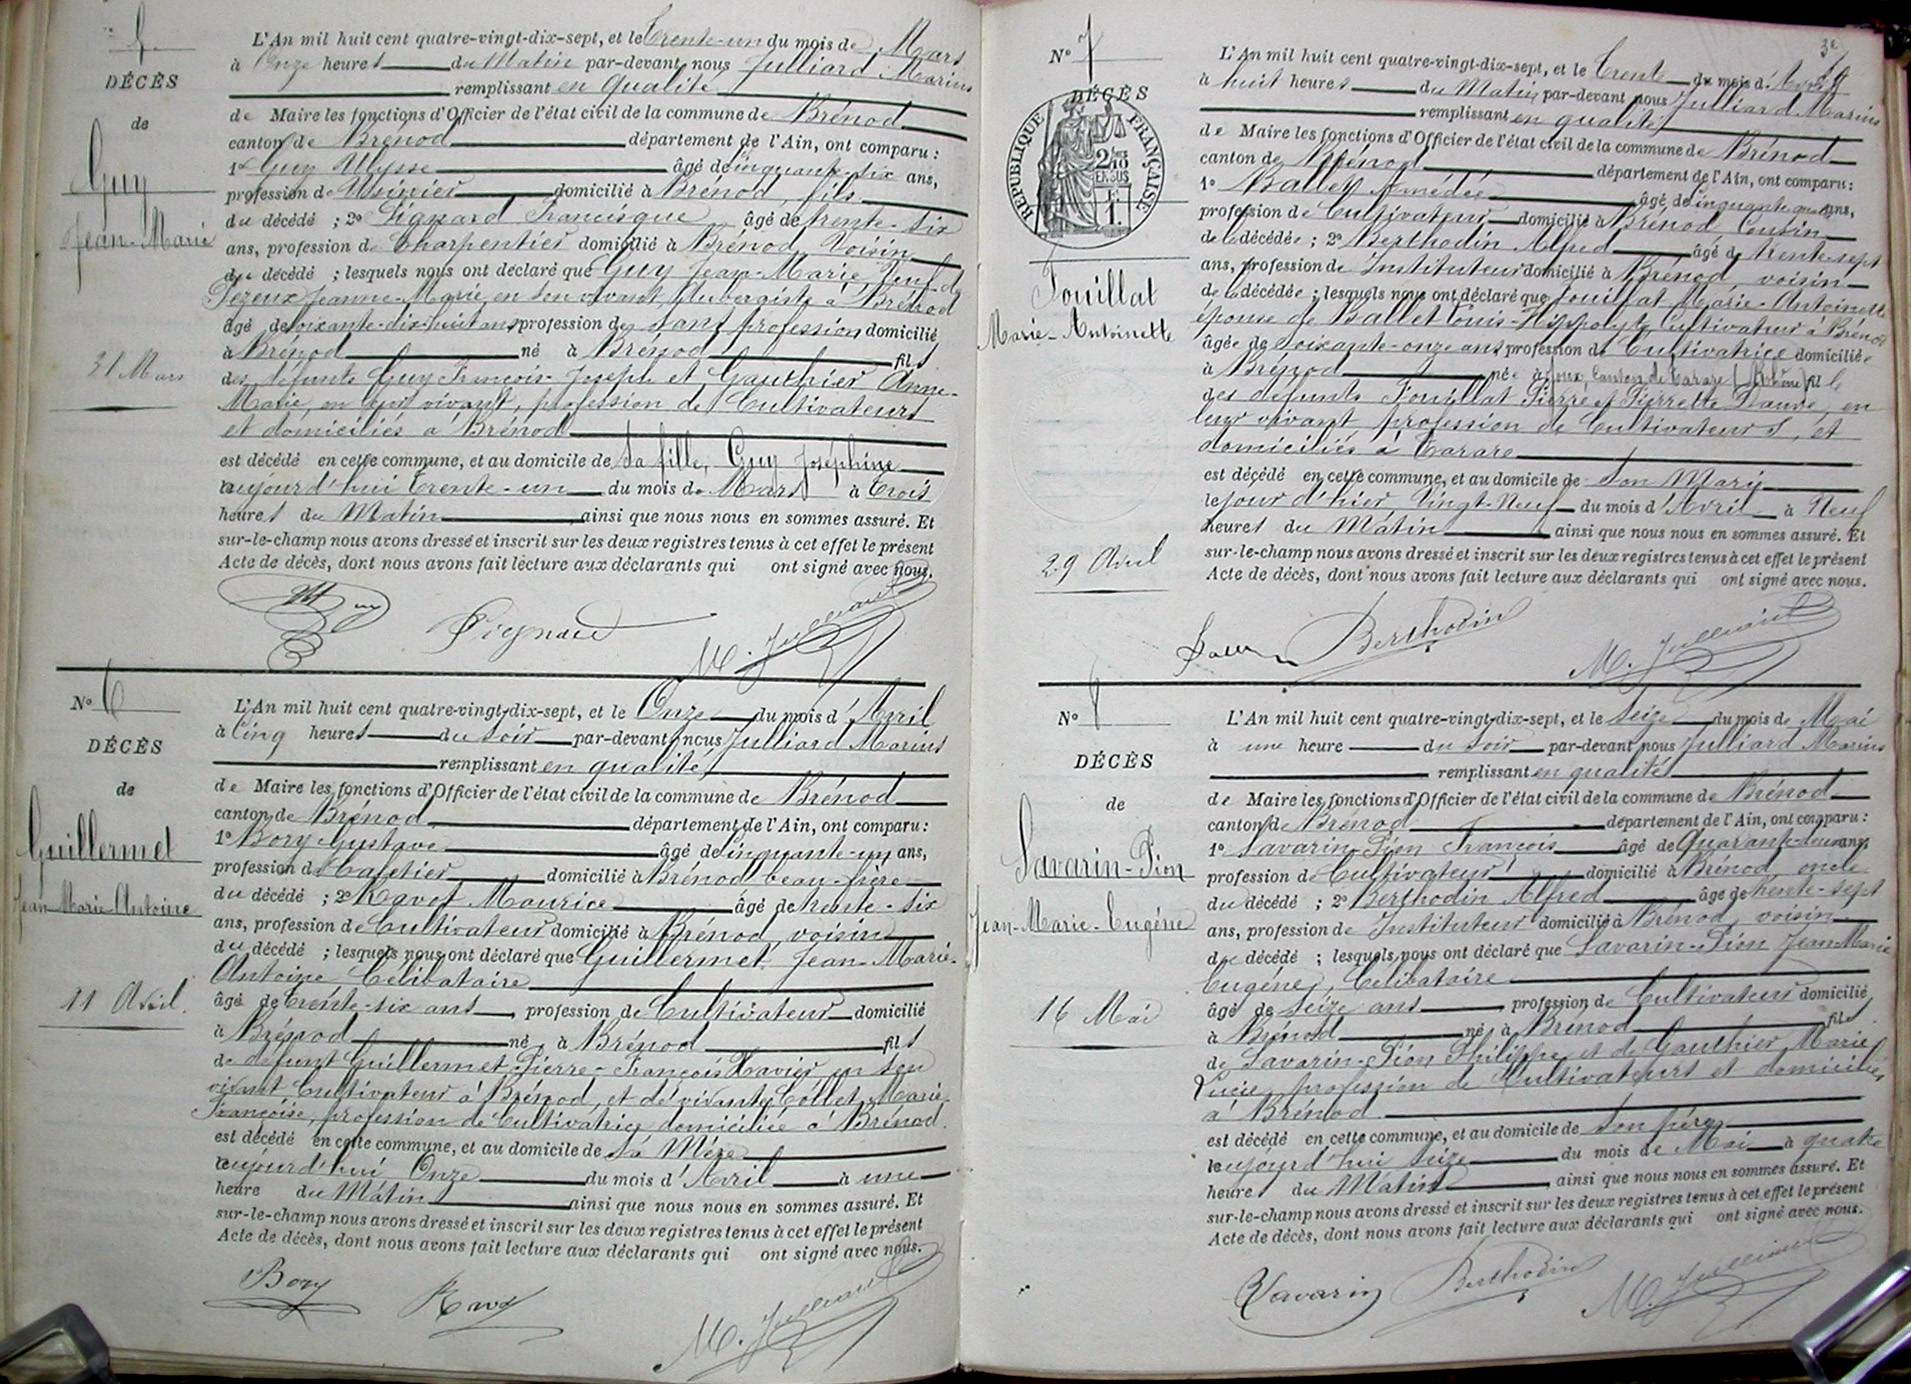 5
DÉCÈS
de
Guy
Jean-Marie
31 Mars
L'An mil huit cent quatre-vingt-dix-sept, et le Trente-un du mois de Mars
à Onze heures du Matin par-devant nous Julliard Marius
remplissant en qualité
de Maire les fonctions d'Officier de l'état civil de la commune de Brénod
canton de Brénod département de l'Ain, ont comparu :
1º Guy Ulysse âgé de cinquante-six ans,
profession de domicilié à Brénod, fils
du décédé ; 2º Pignard Francisque âgé de trente-six
ans, profession de Charpentier domicilié à Brénod, Voisin
du décédé ; lesquels nous ont déclaré que Guy Jean-Marie, Veuf de
Pezeux Jeanne-Marie, en son vivant Aubergiste à Brénod
âgé de soixante-dix-huit ans profession de sans profession domicilié
à Brénod né à Brénod fils
des défunts Guy François-Joseph et Gauthier Anne-
Marie, en leur vivant, profession de Cultivateurs
et domiciliés à Brénod
est décédé en cette commune, et au domicile de Sa fille, Guy Joséphine
aujourd'hui trente-un du mois de Mars à trois
heures du Matin ainsi que nous nous en sommes assuré. Et
sur-le-champ nous avons dressé et inscrit sur les deux registres tenus à cet effet le présent
Acte de décès, dont nous avons fait lecture aux déclarants qui ont signé avec nous.
Guy Pignard M. Julliard
Nº 6
DÉCÈS
de
Guillermet
Jean-Marie-Antoine
11 Avril.
L'An mil huit cent quatre-vingt-dix-sept, et le Onze du mois d'Avril
à Cinq heures du soir par-devant nous Julliard Marius
remplissant en qualité
de Maire les fonctions d'Officier de l'état civil de la commune de Brénod
canton de Brénod département de l'Ain, ont comparu :
1º Bory Gustave âgé de cinquante-un ans,
profession de Cafetier domicilié à Brénod beau-frère
du décédé ; 2º Ravot Maurice âgé de trente-six
ans, profession de Cultivateur domicilié à Brénod, voisin
du décédé ; lesquels nous ont déclaré que Guillermet Jean-Marie-
Antoine Célibataire
âgé de trente-six ans, profession de Cultivateur domicilié
à Brénod né à Brénod fils
de défunt Guillermet Pierre-François Xavier en son
vivant Cultivateur à Brénod, et de vivante Collet Marie-
Françoise, profession de Cultivatrice domiciliée à Brénod.
est décédé en cette commune, et au domicile de Sa Mère
aujourd'hui Onze du mois d'Avril à une
heure du Matin ainsi que nous nous en sommes assuré. Et
sur-le-champ nous avons dressé et inscrit sur les deux registres tenus à cet effet le présent
Acte de décès, dont nous avons fait lecture aux déclarants qui ont signé avec nous.
Bory Ravot M. Julliard
Nº 7
DÉCÈS
RÉPUBLIQUE FRANÇAISE
2/10
EN SUS
1 F.
Fouillat
Marie-Antoinette
29 Avril
L'An mil huit cent quatre-vingt-dix-sept, et le Trente du mois d'Avril
à huit heures du Matin par-devant nous Julliard Marius
remplissant en qualité
de Maire les fonctions d'Officier de l'état civil de la commune de Brénod
canton de Brénod département de l'Ain, ont comparu :
1º Ballet Amédée âgé de cinquante quatre ans,
profession de Cultivateur domicilié à Brénod Cousin
de la décédée ; 2º Berthodin Alfred âgé de trente-sept
ans, profession de Instituteur domicilié à Brénod, voisin
de la décédée ; lesquels nous ont déclaré que Fouillat Marie-Antoinette
épouse de Ballet Louis-Hippolyte Cultivateur à Brénod
âgée de soixante-onze ans profession de Cultivatrice domiciliée
à Brénod née à Joux, Canton de Tarare (Rhône) fille
des défunts Fouillat Pierre et Pierrette Dauve, en
leur vivant profession de Cultivateurs, et
domiciliés à Tarare
est décédé en cette commune, et au domicile de Son Mari
le jour d'hier Vingt-Neuf du mois d'Avril à Neuf
heures du Matin ainsi que nous nous en sommes assuré. Et
sur-le-champ nous avons dressé et inscrit sur les deux registres tenus à cet effet le présent
Acte de décès, dont nous avons fait lecture aux déclarants qui ont signé avec nous.
Berthodin M. Julliard
Nº 8
DÉCÈS
de
Savarin-Pion
Jean-Marie-Eugène
16 Mai
L'An mil huit cent quatre-vingt-dix-sept, et le Seize du mois de Mai
à une heure du soir par-devant nous Julliard Marius
remplissant en qualité
de Maire les fonctions d'Officier de l'état civil de la commune de Brénod
canton de Brénod département de l'Ain, ont comparu :
1º Savarin-Pion François âgé de Quarante-deux ans,
profession de Cultivateur domicilié à Brénod, oncle
du décédé ; 2º Berthodin Alfred âgé de trente-sept
ans, profession de Instituteur domicilié à Brénod, voisin
du décédé ; lesquels nous ont déclaré que Savarin-Pion Jean-Marie
Eugène, Célibataire
âgé de seize ans, profession de Cultivateur domicilié
à Brénod né à Brénod fils
de Savarin-Pion Philippe et de Gauthier Marie
Lucie, profession de Cultivateurs et domiciliés
à Brénod.
est décédé en cette commune, et au domicile de Son père
aujourd'hui seize du mois de Mai à quatre
heures du Matin ainsi que nous nous en sommes assuré. Et
sur-le-champ nous avons dressé et inscrit sur les deux registres tenus à cet effet le présent
Acte de décès, dont nous avons fait lecture aux déclarants qui ont signé avec nous.
Savarin Berthodin M. Julliard